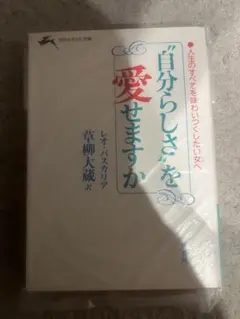 ●人生のすべてを味わいつくしたい女へ
“自分らしさ”を
愛せますか
レオ・バスカリア
草柳大蔵 訳